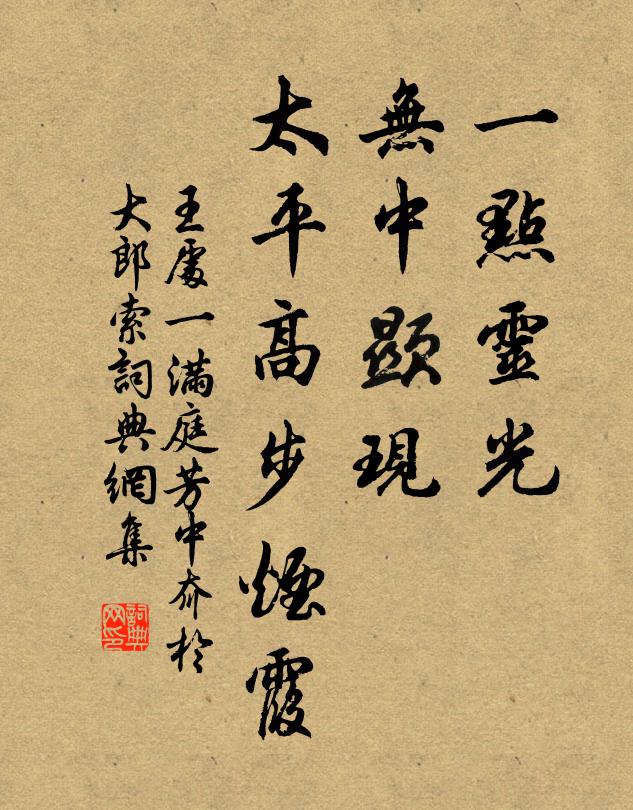 一點靈光
無中顯現
太平高步煙霞
王處一滿庭芳中夼於
大郎索詞典網集
詞典
网印